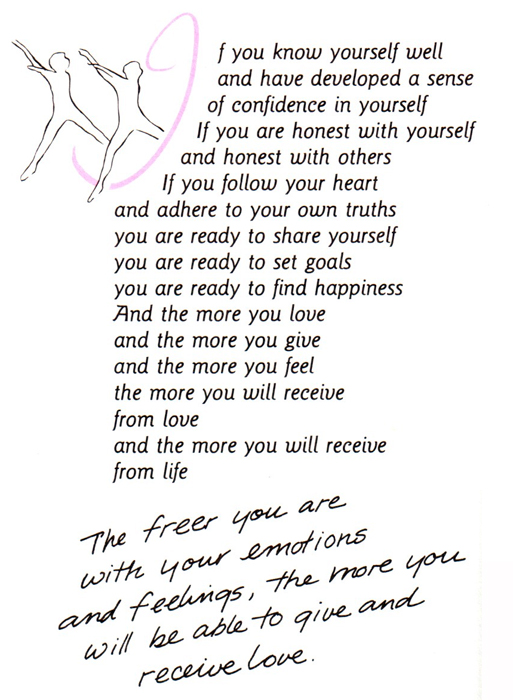 If you know yourself well
and have developed a sense
of confidence in yourself
If you are honest with yourself
and honest with others
If you follow your heart
and adhere to your own truths
you are ready to share yourself
you are ready to set goals
you are ready to find happiness
And the more you love
and the more you give
and the more you feel
the more you will receive
from love
and the more you will receive
from life
The freer you are
with your emotions
and feelings, the more you
will be able to give and
receive love.